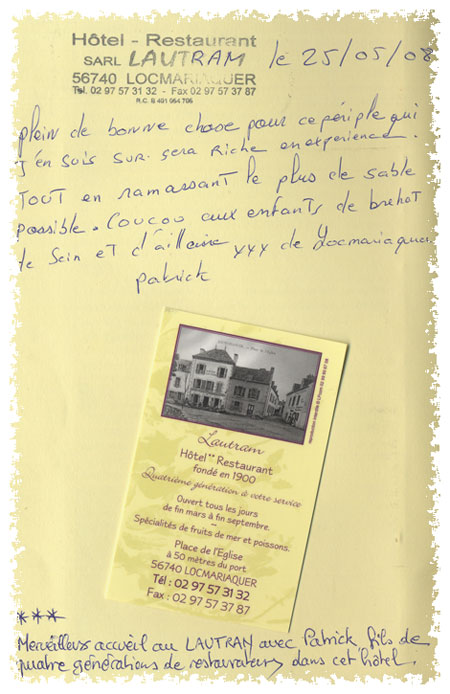 Hôtel - Restaurant
SARL LAUTRAM
56740 LOCMARIAQUER
Tél. 02 97 57 31 32 - Fax 02 97 57 37 87
R.C. B 401 964 706
le 25/05/08
plein de bonne chose pour ce périple qui
j'en suis sur sera riche en experience.
Tout en ramassant le plus de sable
possible. Coucou aux enfants de brehat
de Sein et d'ailleurs xxx de Locmariaquer
patrick
Lautram
Hôtel** Restaurant
fondé en 1900
Quatrième génération à votre service
Ouvert tous les jours
de fin mars à fin septembre.
Spécialités de fruits de mer et poissons.
Place de l'Eglise
à 50 mètres du port
56740 LOCMARIAQUER
Tél : 02 97 57 31 32
Fax : 02 97 57 37 87
***
Merveilleux accueil au LAUTRAM avec Patrick, fils de
quatre générations de restaurateurs dans cet hôtel.